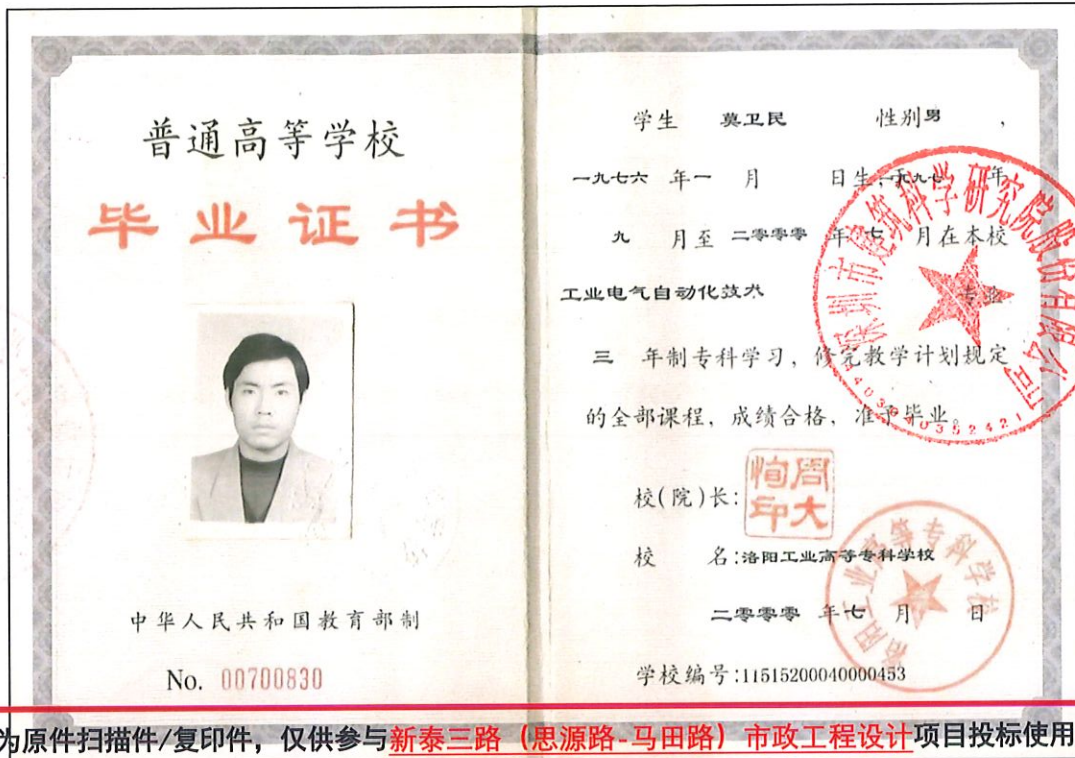 普通高等学校
毕业证书
中华人民共和国教育部制
No. 00700830
学生 莫卫民 性别男 ，
一九七六 年一 月 日生，于一九九七 年
九 月至 二零零零 年七 月在本校
工业电气自动化技术 专业
三 年制专科学习，修完教学计划规定
的全部课程，成绩合格，准予毕业。
校(院)长：
周大恂印
校 名：洛阳工业高等专科学校
二零零零 年七 月 日
学校编号：11515200040000453
深圳市建筑科学研究院股份有限公司
洛阳工业高等专科学校
为原件扫描件/复印件，仅供参与新泰三路（思源路-马田路）市政工程设计项目投标使用